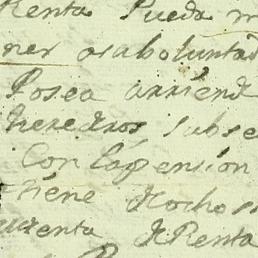 Renta Pueda
ner asaboluntad
Posea arriend
herederos, subse
Con lapension
tiene dhocho
quenta deRenta